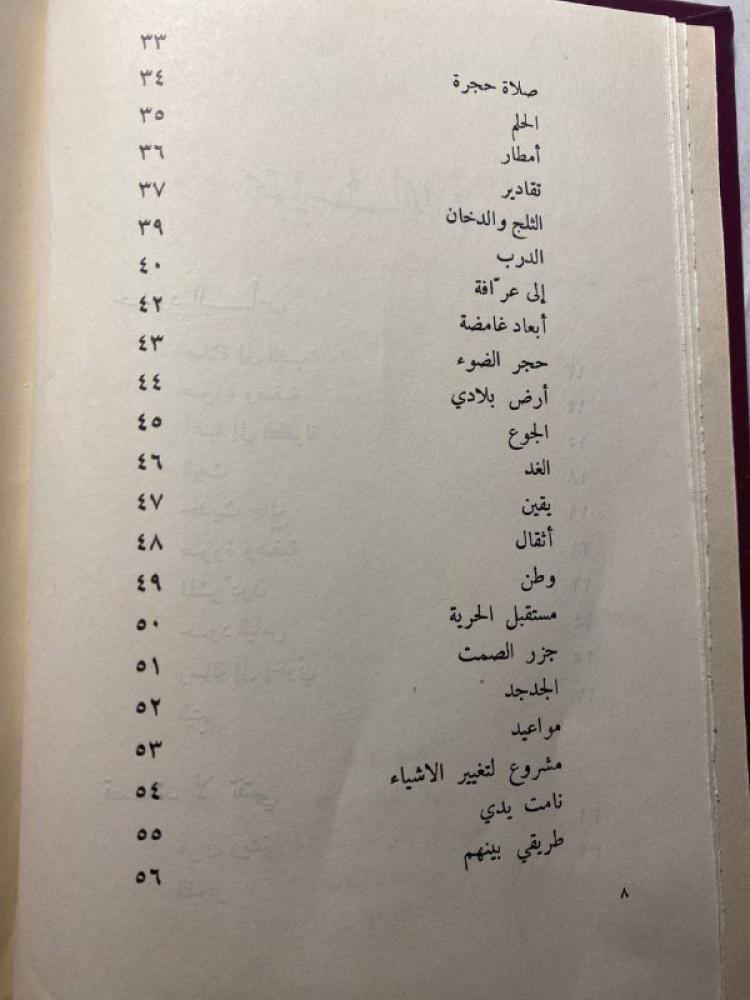 صلاة حجرة ٣٣
الحلم ٣٤
أمطار ٣٥
تقادير ٣٦
الثلج والدخان ٣٧
الدرب ٣٩
إلى عرّافة ٤٠
أبعاد غامضة ٤٢
حجر الضوء ٤٣
أرض بلادي ٤٤
الجوع ٤٥
الغد ٤٦
يقين ٤٧
أثقال ٤٨
وطن ٤٩
مستقبل الحرية ٥٠
جزر الصمت ٥١
الجدجد ٥٢
مواعيد ٥٣
مشروع لتغيير الاشياء ٥٤
نامت يدي ٥٥
طريقي بينهم ٥٦
٨